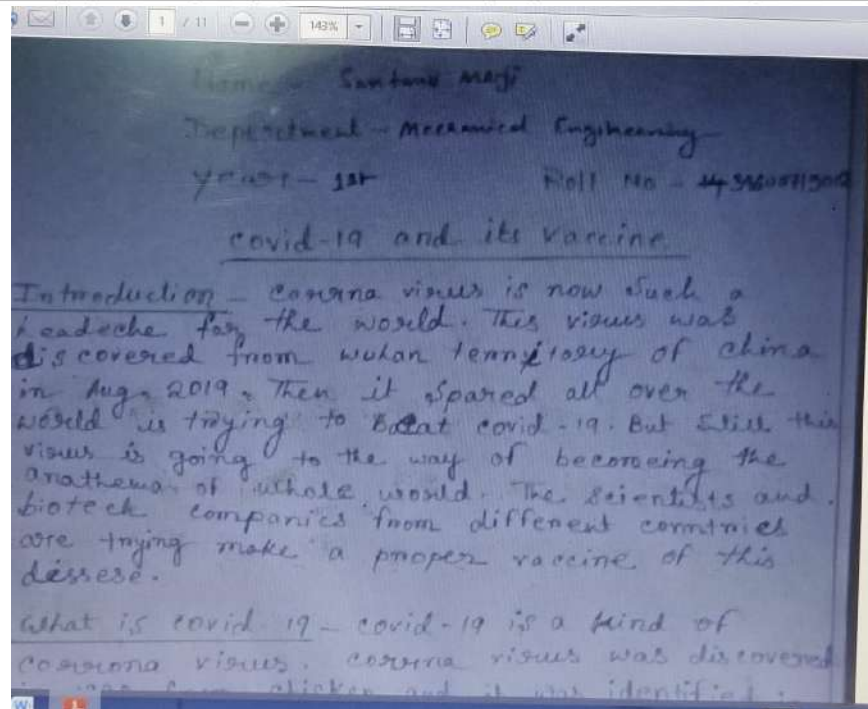 1 / 11 143%
Name - Santanu Maji
Department - Mechanical Engineering
Year - 1st Roll No -
covid-19 and its vaccine
Introduction - corona virus is now such a
headeche for the world. This virus was
discovered from wuhan terrytory of china
in Aug, 2019. Then it spared all over the
world is trying to Beat covid-19. But still this
virus is going to the way of becomeing the
anathema of whole world. The scientists and
biotech companies from different countries
are trying make a proper vaccine of this
dessese.
What is covid 19 - covid-19 is a kind of
corona virus. corona virus was discovered
from chicken and it was identified